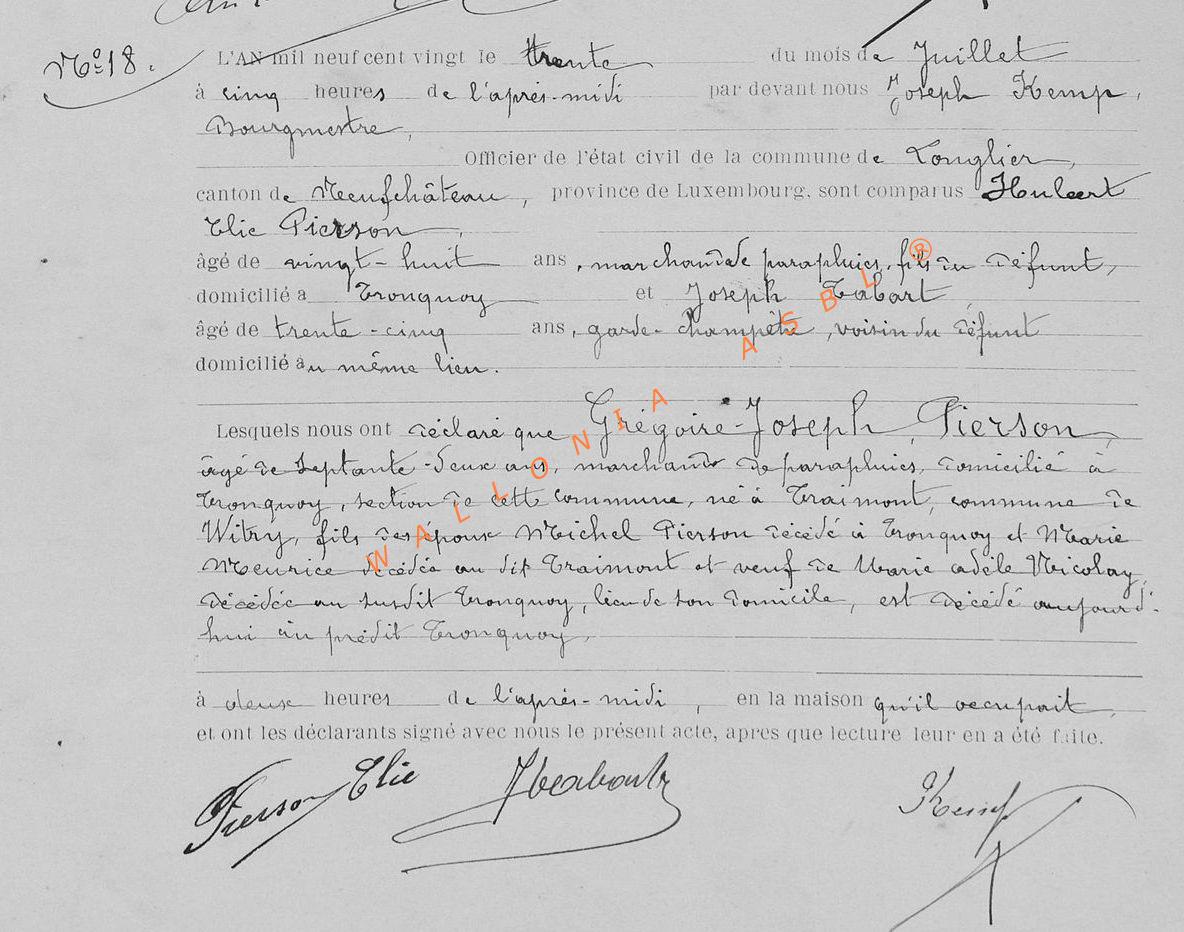 N° 18.
L'AN mil neuf cent vingt le trente du mois de Juillet
à cinq heures de l'après-midi par devant nous Joseph Kemp,
Bourgmestre,
Officier de l'état civil de la commune de Longlier,
canton de Neufchâteau, province de Luxembourg, sont comparus Hubert
Elie Pierson,
âgé de vingt-huit ans, marchand de parapluies, fils du défunt,
domicilié à Tronquoy et Joseph Tabart,
âgé de trente-cinq ans, garde-champêtre, voisin du défunt
domicilié au même lieu.
Lesquels nous ont déclaré que Grégoire-Joseph Pierson,
âgé de septante-deux ans, marchand de parapluies, domicilié à
Tronquoy, section de cette commune, né à Traimont, commune de
Witry, fils des époux Michel Pierson décédé à Tronquoy et Marie
Meurice décédée au dit Traimont et veuf de Marie Adèle Nicolay,
décédée au susdit Tronquoy, lieu de son domicile, est décédé aujourd'
hui au prédit Tronquoy,
à deux heures de l'après-midi, en la maison qu'il occupait,
et ont les déclarants signé avec nous le présent acte, apres que lecture leur en a été faite.
Pierson Elie
Kemp
WALLONIA ASBL ®